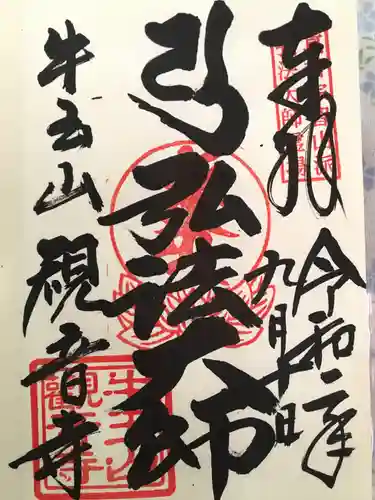 奉拝
令和二年
九月十日
弘法大師
牛玉山
観音寺
牛玉山
觀音寺